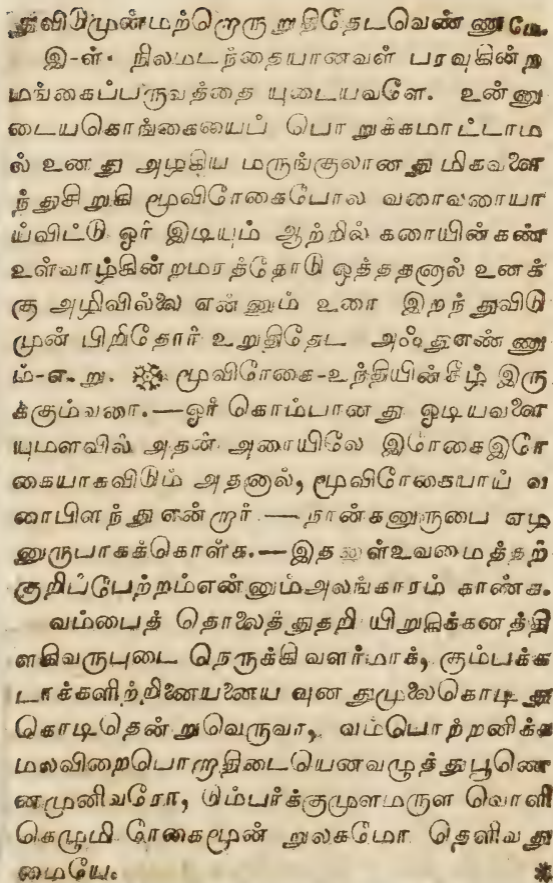 துவிடுமுன்மற்றொரு றுதிதேடவெண்ணுமே.
இ-ள். நிலமடந்தையானவள் பரவுகின்ற
மங்கைப்பருவத்தை யுடையவளே. உன்னு
டையகொங்கையைப் பொறுக்கமாட்டாம
ல் உனது அழகிய மருங்குலானது மிகவளை
ந்துசிறுகி மூவிரேகைபோல வரைவரையா
ய்விட்டு ஓர் இடியும் ஆற்றில் கரையின்கண்
உள்வாழ்கின்றமரத்தோடு ஒத்ததனால் உனக்
கு அழிவில்லை என்னும் உரை இறந்துவிடு
முன் பிறிதோர் உறுதிதேட அஃதுஎண்ணு
ம்-எ-று. மூவிரேகை-உந்தியின்கீழ் இரு
க்கும்வரை.—ஓர் கொம்பானது ஒடியவளை
யுமளவில் அதன் அரையிலே இரேகைஇரே
கையாகவிடும் அதனால், மூவிரேகையாய் வ
ரைபிளந்துஎன்றார் — நான்கனுருபை ஏழ
னுருபாகக்கொள்க.—இதனுள்உவமைத்தற்
குறிப்பேற்றம்என்னும்அலங்காரம் காண்க.
வம்பைத் தொலைத்துதறி யிறுகிக்கனத்தி
ளகிவருபுடை நெருக்கிவளர்மாக், கும்பக்க
டாக்களிற்றிணையனைய வுனதுமுலைகொடிது
கொடிதென்றுவெருவா, வம்பொற்றனிக்க
மலவிறைபொறாதிடையெனவழுத்துபூணெ
னமுனிவரோ, டும்பர்க்குமுளமருள வொளி
கெழுமி ரேகைமூன் றுலகமோ தெளிவது
மையே.